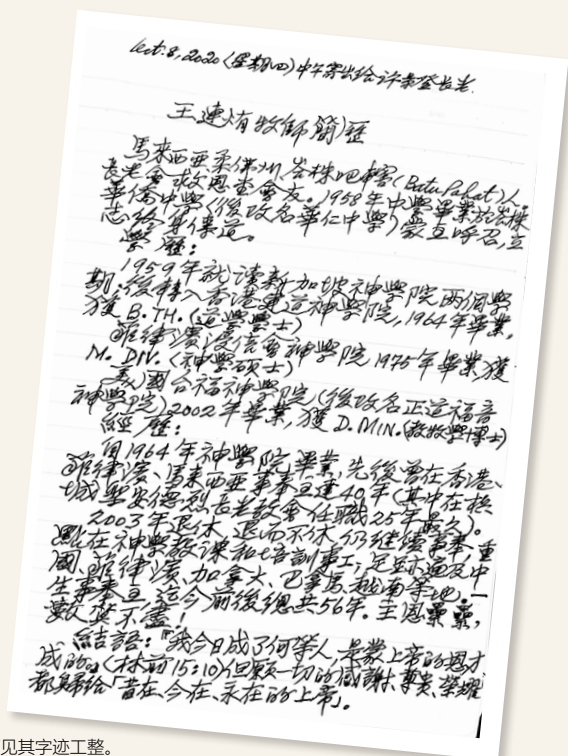 Oct. 8, 2020 (星期四) 中午寄出給許泰登長老
王連有牧師簡歷
馬來西亞柔佛州峇株巴轄 (Batu Pahat) 人。
長老會教會會友。1958年中學畢業於峇株
華僑中學 (後改名華仁中學) 蒙主呼召, 立
志終身傳道。
學歷:
1959年就讀新加坡神學院兩個學
期, 後轉入香港建道神學院, 1964年畢業,
獲 B.TH. (道學學士)
菲律濱浸信會神學院 1975年畢業, 獲
M. DIV. (神學碩士)
美國合福神學院 (後改名正道福音
神學院) 2002年畢業, 獲 D.MIN. (教牧學博士)
經歷:
自1964年神學院畢業, 先後曾在香港、
菲律濱、馬來西亞事奉主達40年 (其中在檳
城聖安德烈長老教會任職25年最久)。
2003年退休, 退而不休, 仍繼續事奉, 重
點在神學教課和培訓事工, 足跡遍及中
國、菲律濱、加拿大、巴、越南等地。一
生事奉主迄今前後總共56年。主恩纍纍,
數算不盡!
結語:「我今日成了何等人, 是蒙上帝的恩才
成的。」(林前15:10) 但願一切的感謝、尊貴、榮耀
都歸給「昔在、今在、永在的上帝」。
见其字迹工整。